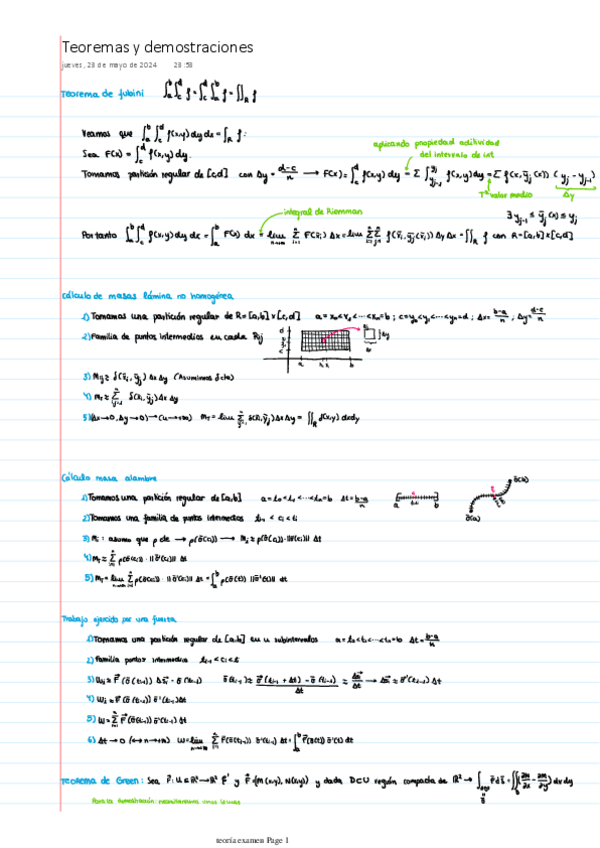 Teoremas y demostraciones
jueves, 23 de mayo de 2024 23:53
Teorema de fubini ∫_a^b ∫_c^d f = ∫_c^d ∫_a^b f = ∬_R f
Veamos que ∫_a^b ∫_c^d f(x,y) dy dx = ∫_R f :
aplicando propiedad aditividad
del intervalo de int
Sea F(x) = ∫_c^d f(x,y) dy.
Tomamos partición regular de [c,d] con Δy = (d-c)/n → F(x) = ∫_c^d f(x,y) dy = Σ ∫_{y_{j-1}}^{y_j} f(x,y) dy = Σ f(x, ȳ_j(x)) (y_j - y_{j-1})
Tª valor medio Δy
∃ y_{j-1} ≤ ȳ_j(x) ≤ y_j
integral de Riemman
Por tanto ∫_a^b ∫_c^d f(x,y) dy dx = ∫_a^b F(x) dx = lim Σ F(x̄_i) Δx = lim Σ Σ f(x̄_i, ȳ_j(x̄_i)) Δy Δx = ∬_R f con R = [a,b]x[c,d]
Cálculo de masas lámina no homogénea
1) Tomamos una partición regular de R = [a,b] x [c,d] a = x_0 < x_1 < ... < x_n = b ; c = y_0 < y_1 < ... < y_n = d ; Δx = (b-a)/n ; Δy = (d-c)/n
2) Familia de puntos intermedios en cada R_ij
3) M_ij ≈ δ(x̄_i, ȳ_j) Δx Δy (Asumimos δ cte)
4) m_T ≈ Σ δ(x̄_i, ȳ_j) Δx Δy
5) (Δx→0, Δy→0) → (n→+∞) m_T = lim Σ δ(x̄_i, ȳ_j) Δx Δy = ∬_R δ(x,y) dx dy
Cálculo masa alambre
1) Tomamos una partición regular de [a,b] a = t_0 < t_1 < ... < t_n = b Δt = (b-a)/n
2) Tomamos una familia de puntos intermedios t_{i-1} < c_i < t_i
3) m_i : asumo que ρ cte → ρ(σ̄(c_i)) → m_i ≈ ρ(σ̄(c_i)) · ||σ̄'(c_i)|| Δt
4) m_T ≈ Σ ρ(σ̄(c_i)) · ||σ̄'(c_i)|| Δt
5) m_T = lim Σ ρ(σ̄(c_i)) · ||σ̄'(c_i)|| Δt = ∫_a^b ρ(σ̄(t)) ||σ̄'(t)|| dt
Trabajo ejercido por una fuerza
1) Tomamos una partición regular de [a,b] en n subintervalos a = t_0 < t_1 < ... < t_n = b Δt = (b-a)/n
2) Familia puntos intermedios t_{i-1} < c_i < t_i
4) W_i ≈ F⃗(σ̄(t_{i-1})) σ̄'(t_{i-1}) Δt
5) W ≈ Σ F⃗(σ̄(t_{i-1})) σ̄'(t_{i-1}) Δt
6) Δt → 0 (↔ n→+∞) W = lim Σ F⃗(σ̄(t_{i-1})) σ̄'(t_{i-1}) Δt = ∫_a^b F⃗(σ̄(t)) σ̄'(t) dt
Teorema de Green: Sea F⃗: U ⊂ R² → R² y F⃗ = (M(x,y), N(x,y)) y dada D ⊂ U región compacta de R² →
Para la demostración necesitaremos unos lemas
teoría examen Page 1